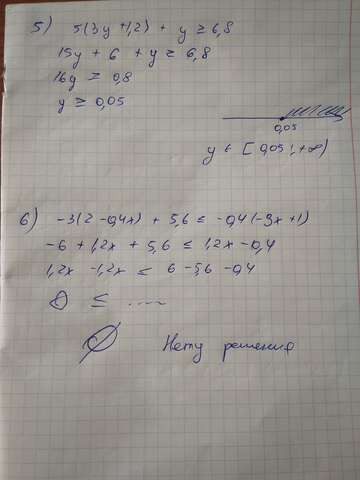 5) 5(3y+1,2) + y ≥ 6,8
15y + 6 + y ≥ 6,8
16y ≥ 0,8
y ≥ 0,05
0,05
y ∈ [0,05 ; +∞)
6) -3(2-0,4x) + 5,6 ≤ -0,4(-3x+1)
-6 + 1,2x + 5,6 ≤ 1,2x - 0,4
1,2x - 1,2x ≤ 6 - 5,6 - 0,4
0 ≤ .....
∅ Нету решения